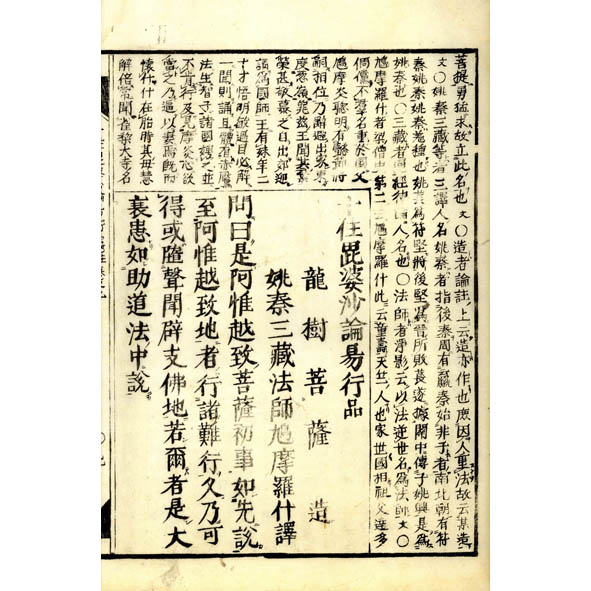 菩提勇猛求故立此名也文〇造者論註上云造亦作也庶因人重法故云某造
文〇姚秦三藏等者三譯人名姚秦者指後秦周有嬴秦始非子者南北朝有符
秦姚秦姚羌種也姚萇為符堅將後堅為晉所敗萇遂據關中傳子姚興是為
姚秦也〇三藏者
人名也〇法師者淨影云以法逆世名為法師文〇
鳩摩羅什者梁僧
第二云鳩摩羅什此云童壽天竺人也家世國相祖父達多
倜儻不群名重於國父
鳩摩炎聰明有懿節將
嗣相位乃辭避出家東
度葱嶺龜茲王聞其棄
榮甚敬慕之自出郊迎
請為國師王有妹年二
十才悟明敏過目必解
一聞則誦且體有赤黶
法生智子諸國娉之並
不肯行及見摩炎心欲
當之乃逼以妻焉既而
懷什什在胎時其母慧
解倍常聞雀梨大寺名
十住毘婆沙論易行品
龍樹菩薩造
姚秦三藏法師鳩摩羅什譯
問曰是阿惟越致菩薩初事如先說
至阿惟越致地者行諸難行久乃可
得或墮聲聞辟支佛地若爾者是大
衰患如助道法中說